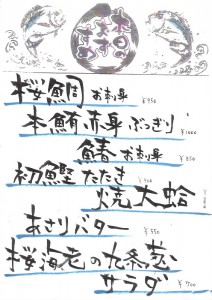 本日の
おすすめ
桜鯛 お刺身 ¥950
本鮪赤身ぶつぎり ¥1000
鯖お刺身 ¥850
初鰹たたき ¥900
焼大蛤
あさりバター ¥550
桜海老の九条葱
サラダ ¥700